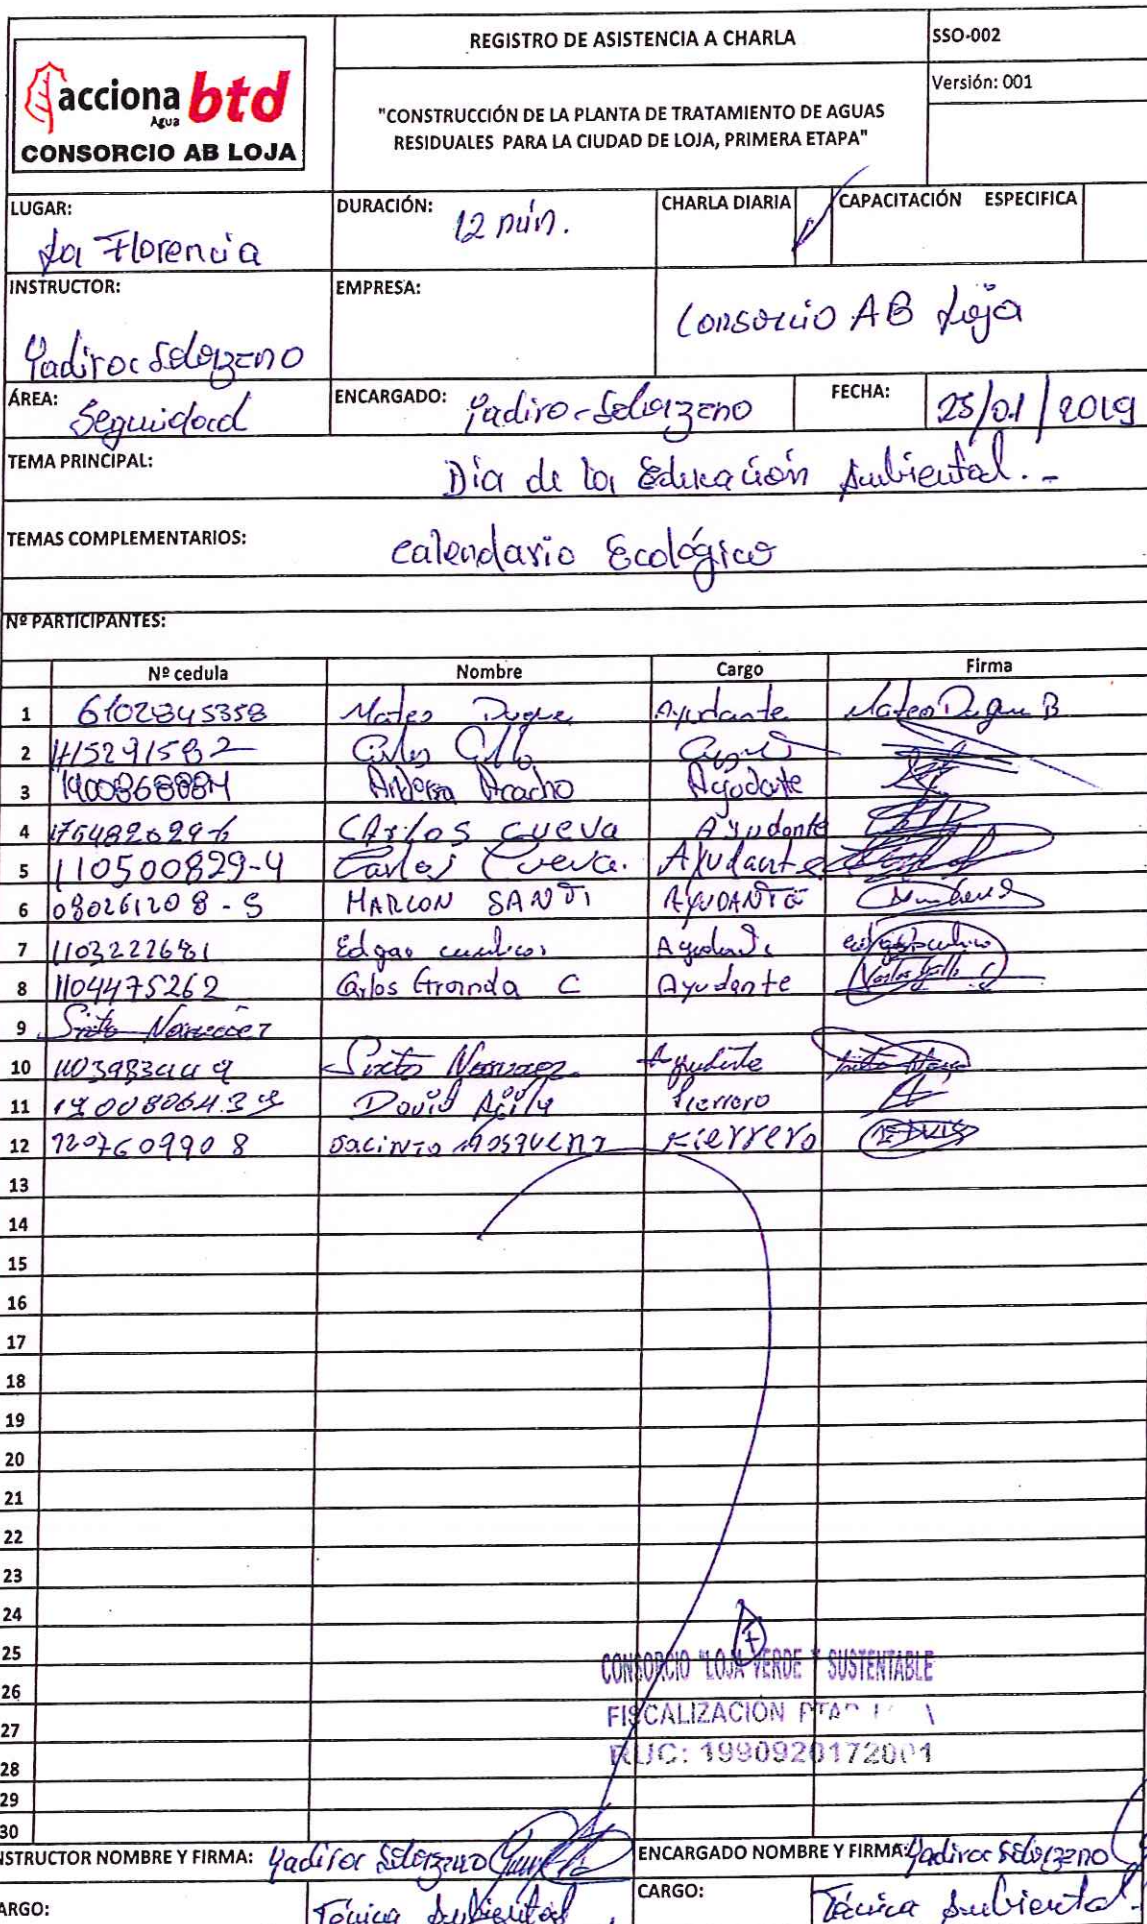 acciona btd
Agua
CONSORCIO AB LOJA
REGISTRO DE ASISTENCIA A CHARLA
SSO-002
"CONSTRUCCIÓN DE LA PLANTA DE TRATAMIENTO DE AGUAS
RESIDUALES PARA LA CIUDAD DE LOJA, PRIMERA ETAPA"
Versión: 001
LUGAR: La Florencia
DURACIÓN: 12 min.
CHARLA DIARIA
CAPACITACIÓN ESPECIFICA
INSTRUCTOR: Yadira Solorzano
EMPRESA: Consorcio AB Loja
ÁREA: Seguridad
ENCARGADO: Yadira Solorzano
FECHA: 25/01/2019
TEMA PRINCIPAL: Dia de la Educación Ambiental.-
TEMAS COMPLEMENTARIOS: Calendario Ecológico
Nº PARTICIPANTES:
Nº cedula Nombre Cargo Firma
1 6102845358 Mateo Duque Ayudante Mateo Duque B
2 Carlos
3 Ayudante
4 Carlos Cueva Ayudante
5 110500829-4 Carlos Cueva. Ayudante
6 080261208-5 MARLON SANTI AYUDANTE
7 Edgar Ayudante
8 1104475262 Carlos Granda C Ayudante
9 Sixto Narvaez
10 Sixto Narvaez Ayudante
11 David Fierrero
12 1207609908 Jacinto Mosquera Fierrero
13
14
15
16
17
18
19
20
21
22
23
24
25
26
27
28
29
30
CONSORCIO "LOJA VERDE Y SUSTENTABLE
FISCALIZACIÓN PTAR
RUC: 1990920172001
NSTRUCTOR NOMBRE Y FIRMA: Yadira Solorzano
ENCARGADO NOMBRE Y FIRMA: Yadira Solorzano
ARGO: Técnica Ambiental.
CARGO: Técnica Ambiental.